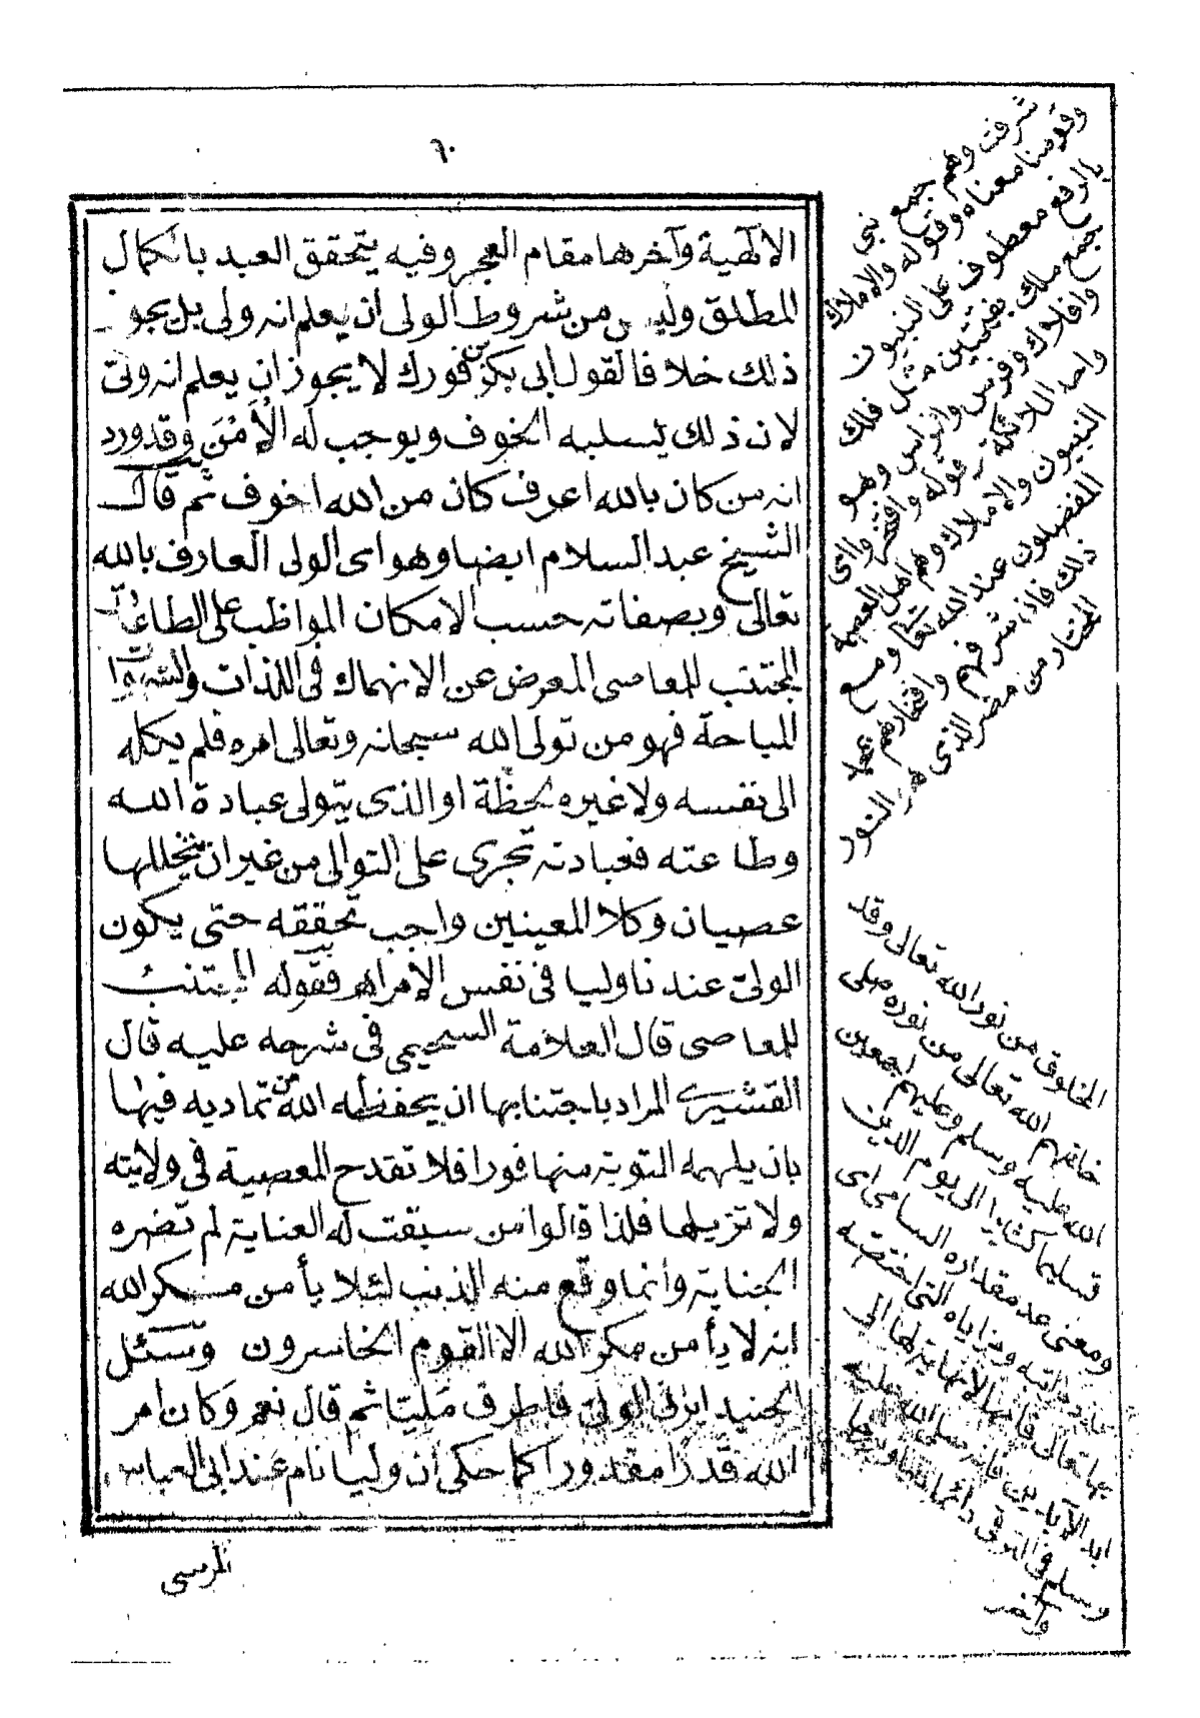 ٦٠
الالٓهية وآخرها مقام العجز وفيه يتحقق العبد بالكمال
المطلق وليس من شروط الولى ان يعلم انه ولى بل يجو
ذلك خلافا لقول ابى بكر بن فورك لا يجوز ان يعلم انه ولىّ
لان ذلك يسلبه الخوف ويوجب له الأمْنَ وقد ورد
انه من كان بالله اعرف كان من الله اخوف ثم قال
الشيخ عبد السلام ايضا وهو اى الولى العارف بالله
تعالى وبصفاته حسب الامكان المواظب على الطاعات
المجتنب للمعاصى المعرض عن الانهماك فى اللذات والشهوات
المباحة فهو من تولى الله سبحانه وتعالى امره فلم يكله
الى نفسه ولا غيره لحظة او الذى يتولى عبادة الله
وطاعته فعبادته تجرى على التوالى من غير ان يتخللها
عصيان وكلا المعينين واجب تحققه حتى يكون
الولىّ عندنا وليا فى نفس الامر اهـ فقوله المجتنب
للمعاصى قال العلامة السحيمى فى شرحه عليه قال
القشيرى المراد باجتنابها ان يحفظه الله من تماديه فيها
بان يلهمه التوبة منها فورا فلا تقدح المعصية فى ولايته
ولا تزيلها فلذا قالوا من سبقت له العناية لم تضره
الجناية وأنما وقع منه الذنب لئلا يأمن مكر الله
انه لا يأمن مكر الله الا القوم الخاسرون وسئل
الجنيد ايزنى الولىّ فاطرق مليّا ثم قال نعم وكان امر
الله قدرًا مقدورا كما حكى ان وليا نام عند ابى العباس
المرسى
شرفت وهم جمع نبى
وقومنا معناه وقوله والاملاك
بالرفع معطوف على النبيون
جمع ملك بفتحتين مثل فلك
وافلاك وفرس وافراس وهو
واحد الملائكة وقوله وافتخر واى
النبيون والاملاك وهم اهل العصمة
المفضلون عند الله تعا ومع
ذلك فاذا شرفهم وافتخارهم بهذا
المختار من مضر الذى هو النور
المخلوق من نور الله تعالى وقد
خلقهم الله تعالى من نوره صلى
الله عليه وسلم وعليهم اجمعين
تسليما كثيرا الى يوم الدين
ومعنى عد مقداره السامى اى
مراتبه ومزاياه التى اختصه
بها تعالى فانها لا نهاية لها الى
ابد الآبدين فانه صلى الله عليه
وسلم فى الترقى دائما